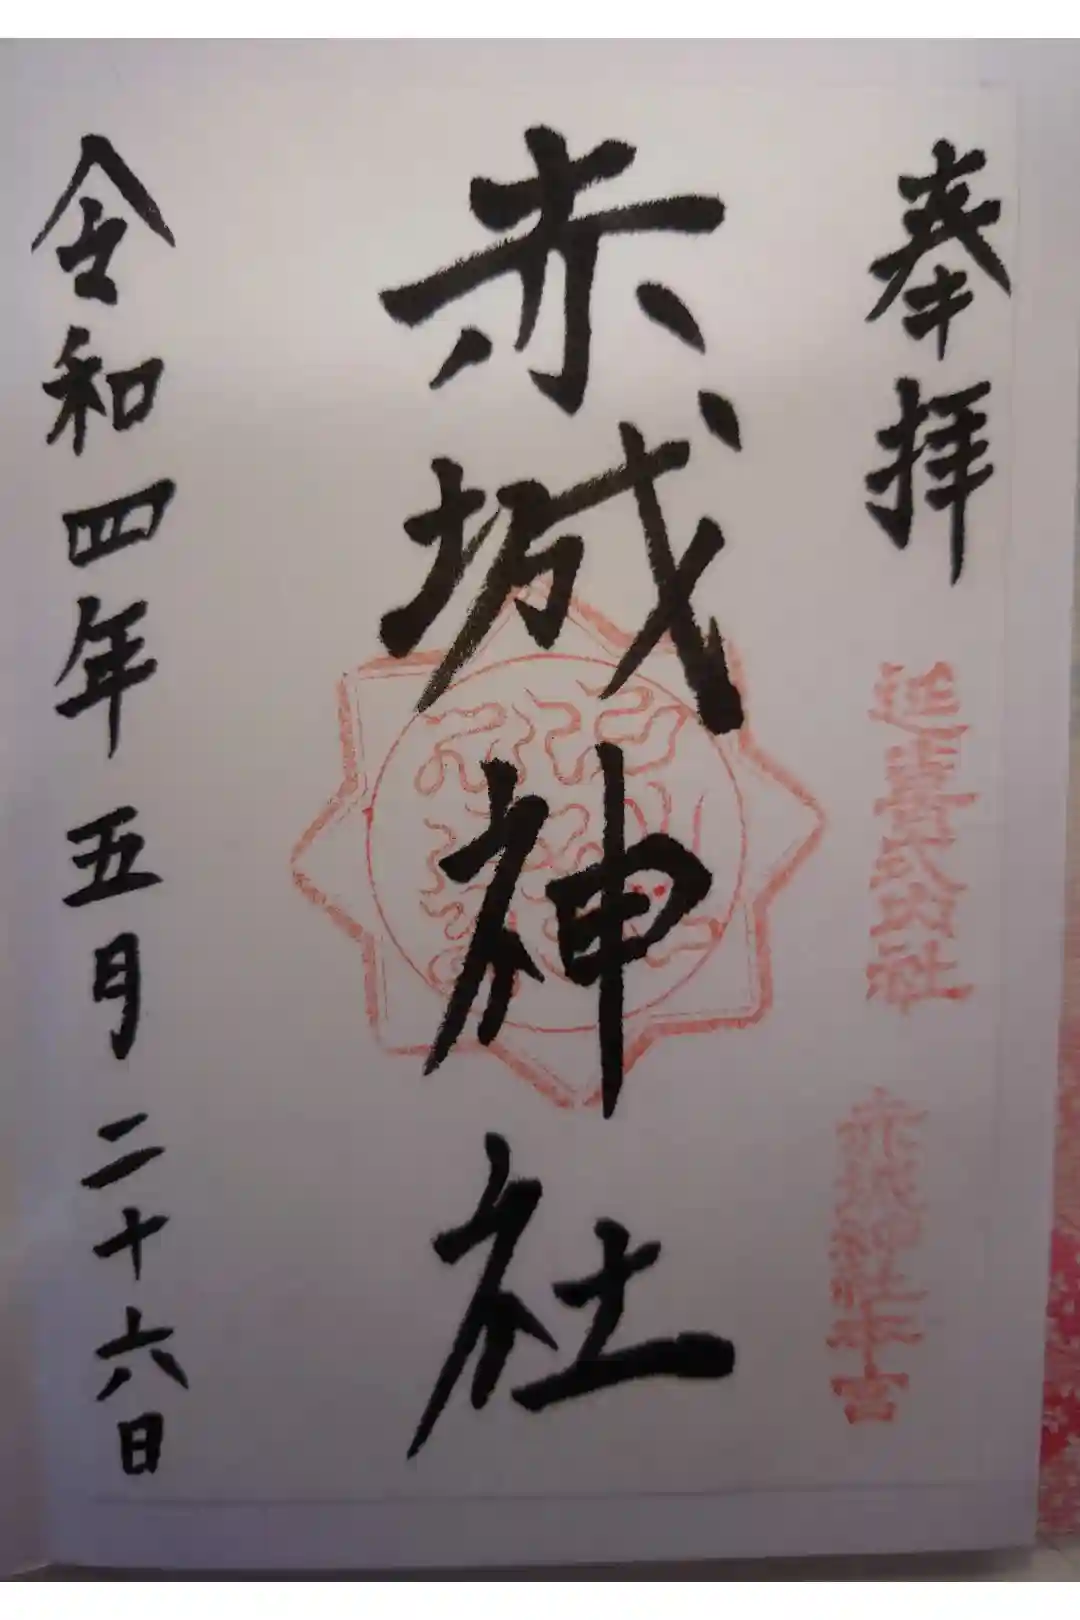 奉拝
延喜式内社
赤城神社本宮
赤城神社
令和四年五月二十六日